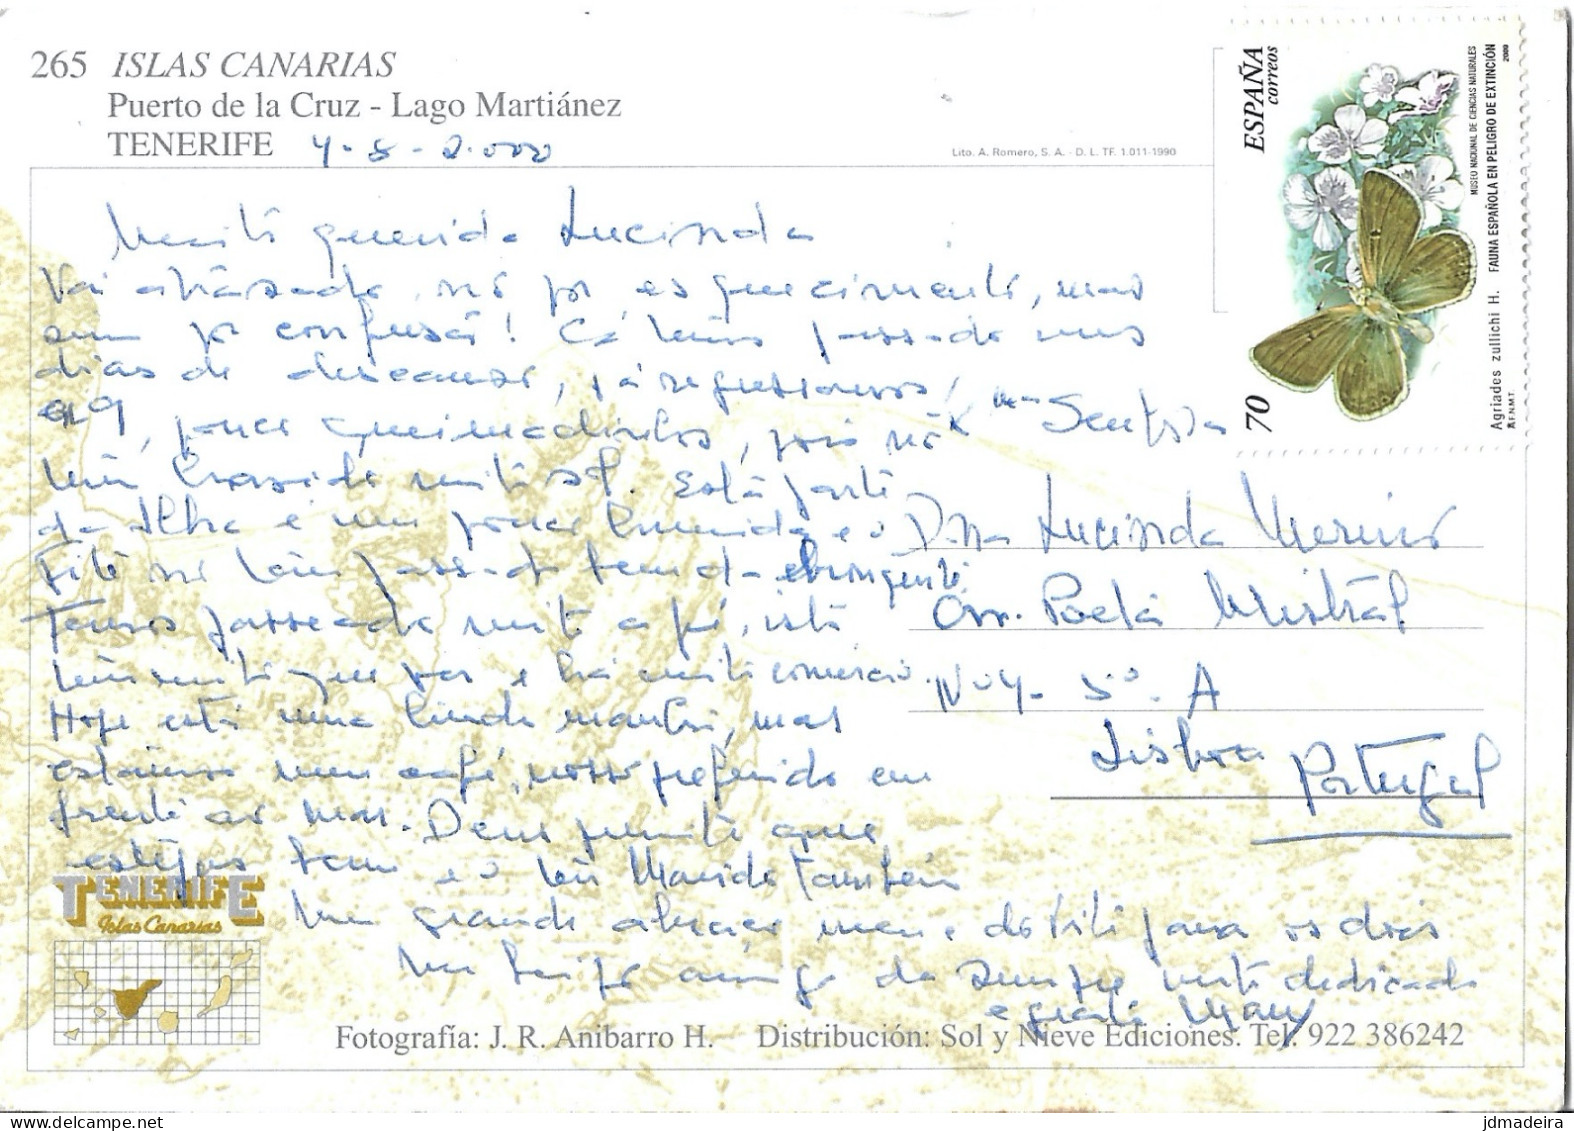 265 ISLAS CANARIAS
Puerto de la Cruz - Lago Martiánez
TENERIFE 4-8-2.000
Lito. A. Romero, S. A. - D. L. TF. 1.011-1990
ESPAÑA
correos
70
MUSEO NACIONAL DE CIENCIAS NATURALES
FAUNA ESPAÑOLA EN PELIGRO DE EXTINCIÓN
2000
Agriades zullichi H.
F.N.M.T.
Muito querida Lucinda
Vai atrasado, não por esquecimento, mas
sim por confusão! Cá temos passado uns
dias de descanso, já regressamos,
, pouco queimadinhos, pois não
tem havido muito sol. Esta parte
da Ilha é um pouco húmida e o
Tito não tem passado
Temos passeado muito a pé, isto
tem muito que ver e há muito comércio.
Hoje está uma linda manhã, mas
estamos num café, nosso preferido em
frente ao mar. Deus permita que
estejas bem e o teu Marido também
Um grande abraço meu e do Tito para os dois
da sempre muito dedicada
e grata Mary
Dna Lucinda
Poeta Mistral
Nº 4- 5º. A
Lisboa
Portugal
TENERIFE
Islas Canarias
Fotografía: J. R. Anibarro H. Distribución: Sol y Nieve Ediciones. Tel. 922 386242
jdmadeira